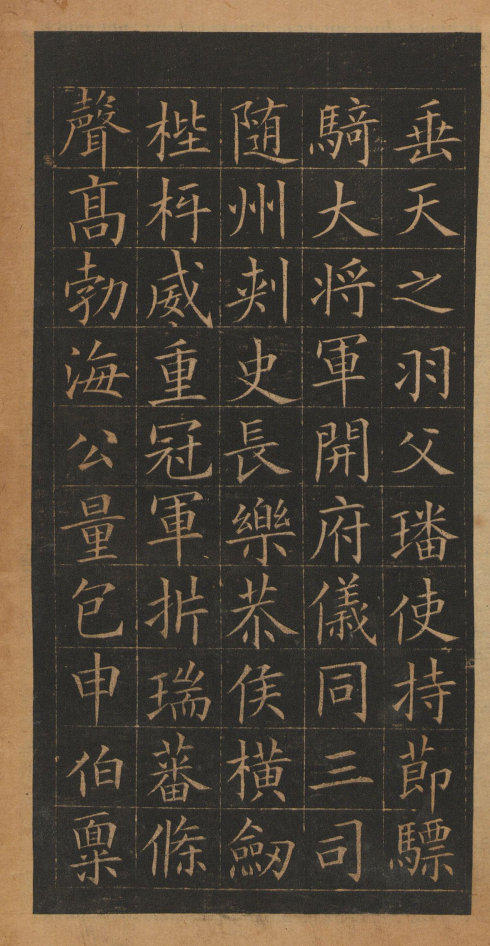 垂天之羽父璠使持莭驃
騎大将軍開府儀同三司
随州刾史長樂恭侯横劒
梐枑威重冠軍折瑞蕃條
聲髙勃海公量包申伯禀